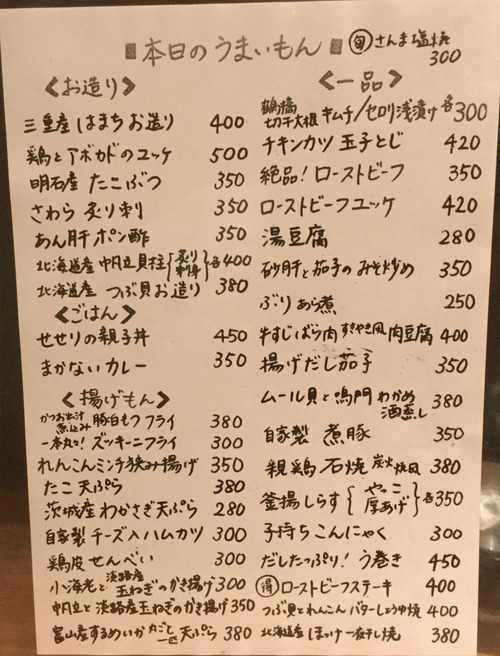 本日のうまいもん
旬 さんま塩焼 300
<お造り>
三重産 はまちお造り 400
鶏とアボカドのユッケ 500
明石産 たこぶつ 350
さわら 炙り刺 350
あん肝ポン酢 350
北海道産 帆立貝柱{炙り 刺身}各400
北海道産 つぶ貝お造り 380
<ごはん>
せせりの親子丼 450
まかないカレー 350
<揚げもん>
かつお出汁煮込み 豚白もつフライ 380
一本丸ごと! ズッキーニフライ 300
れんこんミンチ挟み揚げ 350
たこ天ぷら 380
茨城産 わかさぎ天ぷら 280
自家製 チーズ入ハムカツ 300
鶏皮せんべい 300
小海老と淡路産玉ねぎのかき揚げ 300
帆立と淡路産玉ねぎのかき揚げ 350
富山産するめいか丸ごと一匹天ぷら 380
<一品>
鶴橋 切干大根キムチ/セロリ浅漬け 各300
チキンカツ玉子とじ 420
絶品!ローストビーフ 350
ローストビーフユッケ 420
湯豆腐 280
砂肝と茄子のみそ炒め 350
ぶりあら煮 250
牛すじばら肉すきやき風肉豆腐 400
揚げだし茄子 350
ムール貝と鳴門わかめ酒蒸し 380
自家製 煮豚 350
親鶏石焼 炭火焼風 380
釜揚しらす{やっこ 厚あげ}各350
子持ちこんにゃく 300
だしたっぷり!う巻き 450
得 ローストビーフステーキ 400
つぶ貝とれんこんバターしょうゆ焼 400
北海道産 ほっけ一夜干し焼 380